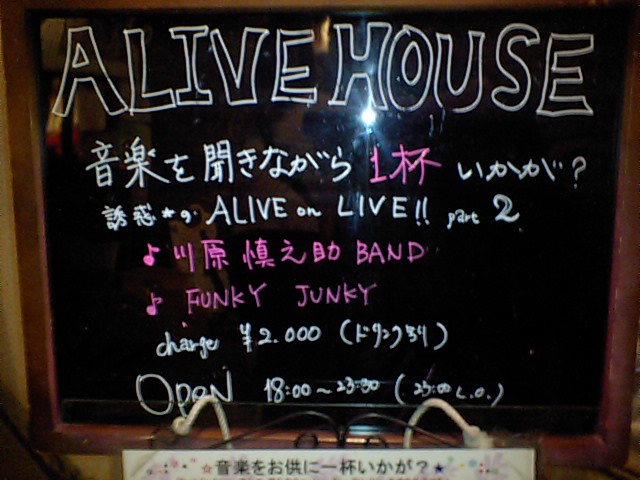 ALIVE HOUSE
音楽を聞きながら1杯いかが?
誘惑*の ALIVE on LIVE!! part 2
♪川原 慎之助 BAND
♪FUNKY JUNKY
charge ¥2.000 (ドリンク別)
Open 18:00～23:30 (23:00 L.O.)
☆音楽をお供に一杯いかが?★